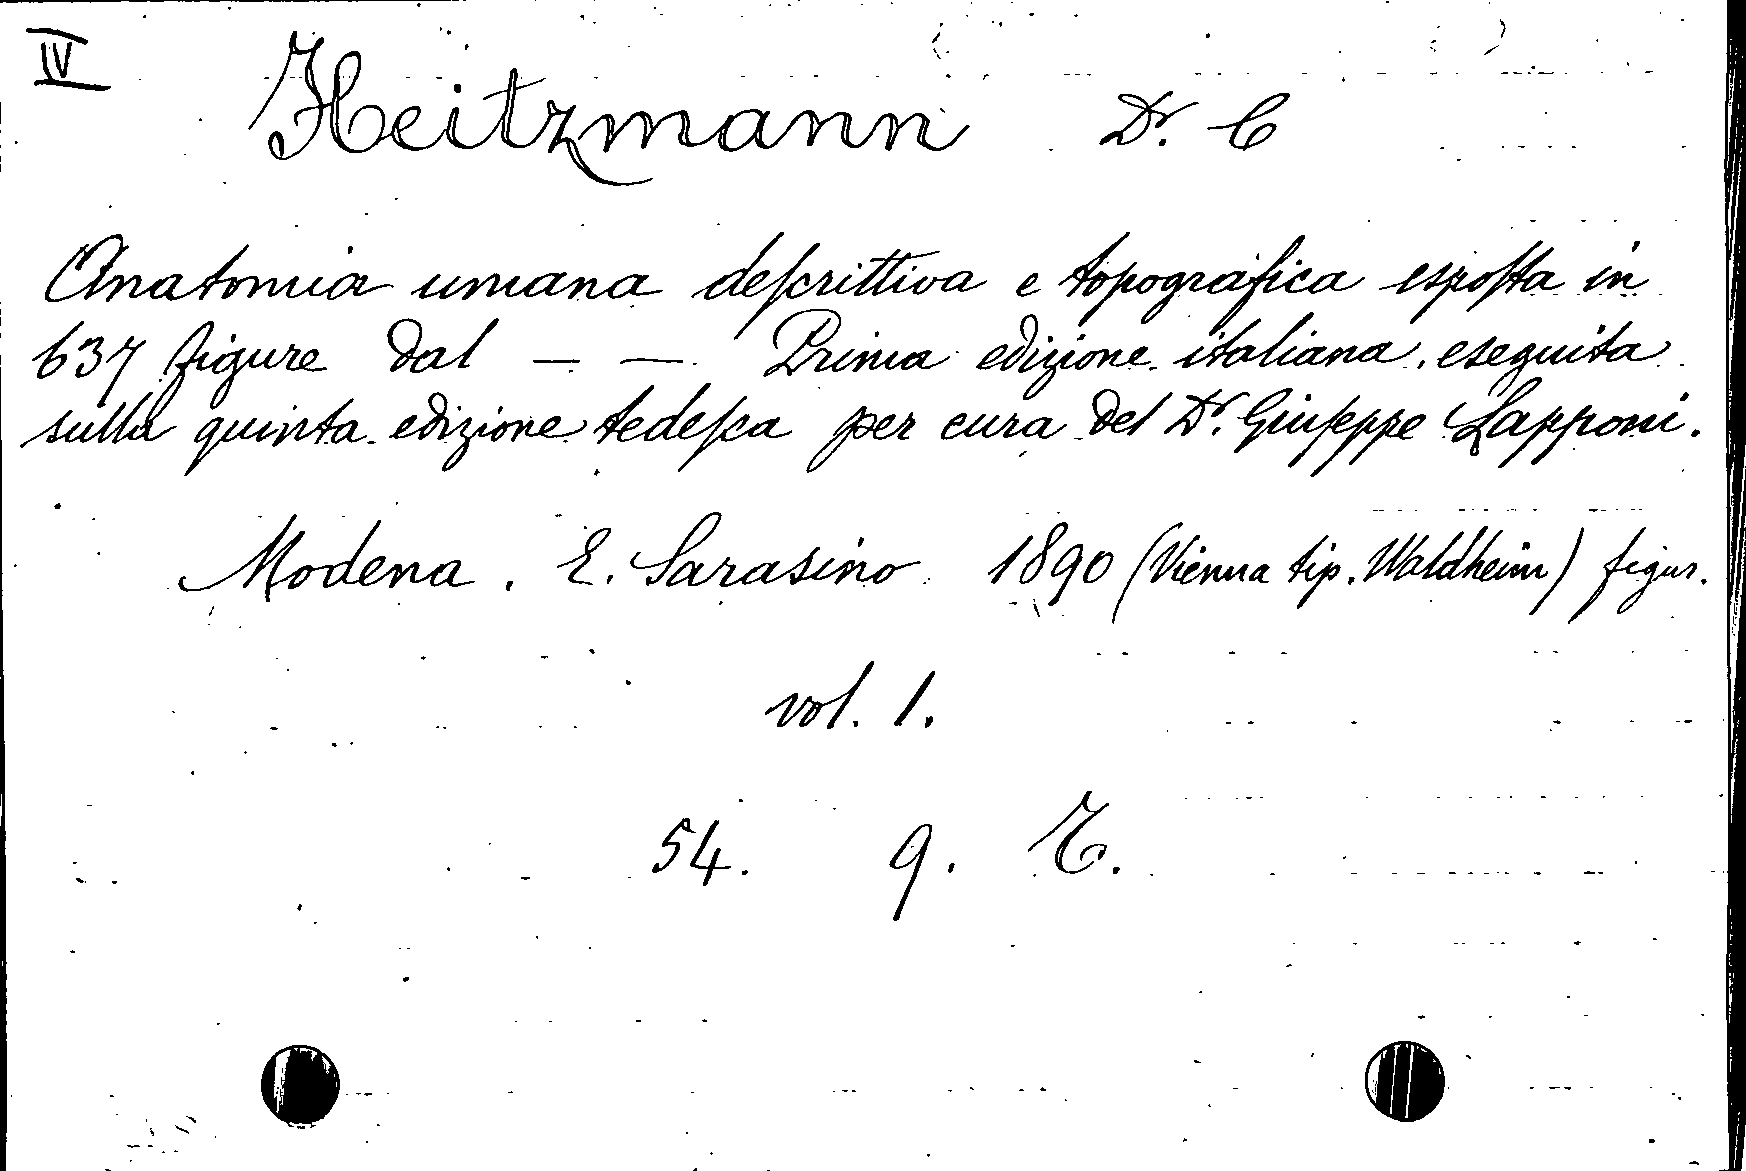 IV
Heitzmann Dr. C
Anatomia umana descrittiva e topografica esposta in
637 figure dal — — Prima edizione italiana eseguita
sulla quinta edizione tedesca per cura del Dr. Giuseppe Lapponi.
Modena. E. Sarasino 1890 (Vienna tip. Waldheim) figur.
vol. 1.
54. 9. T.